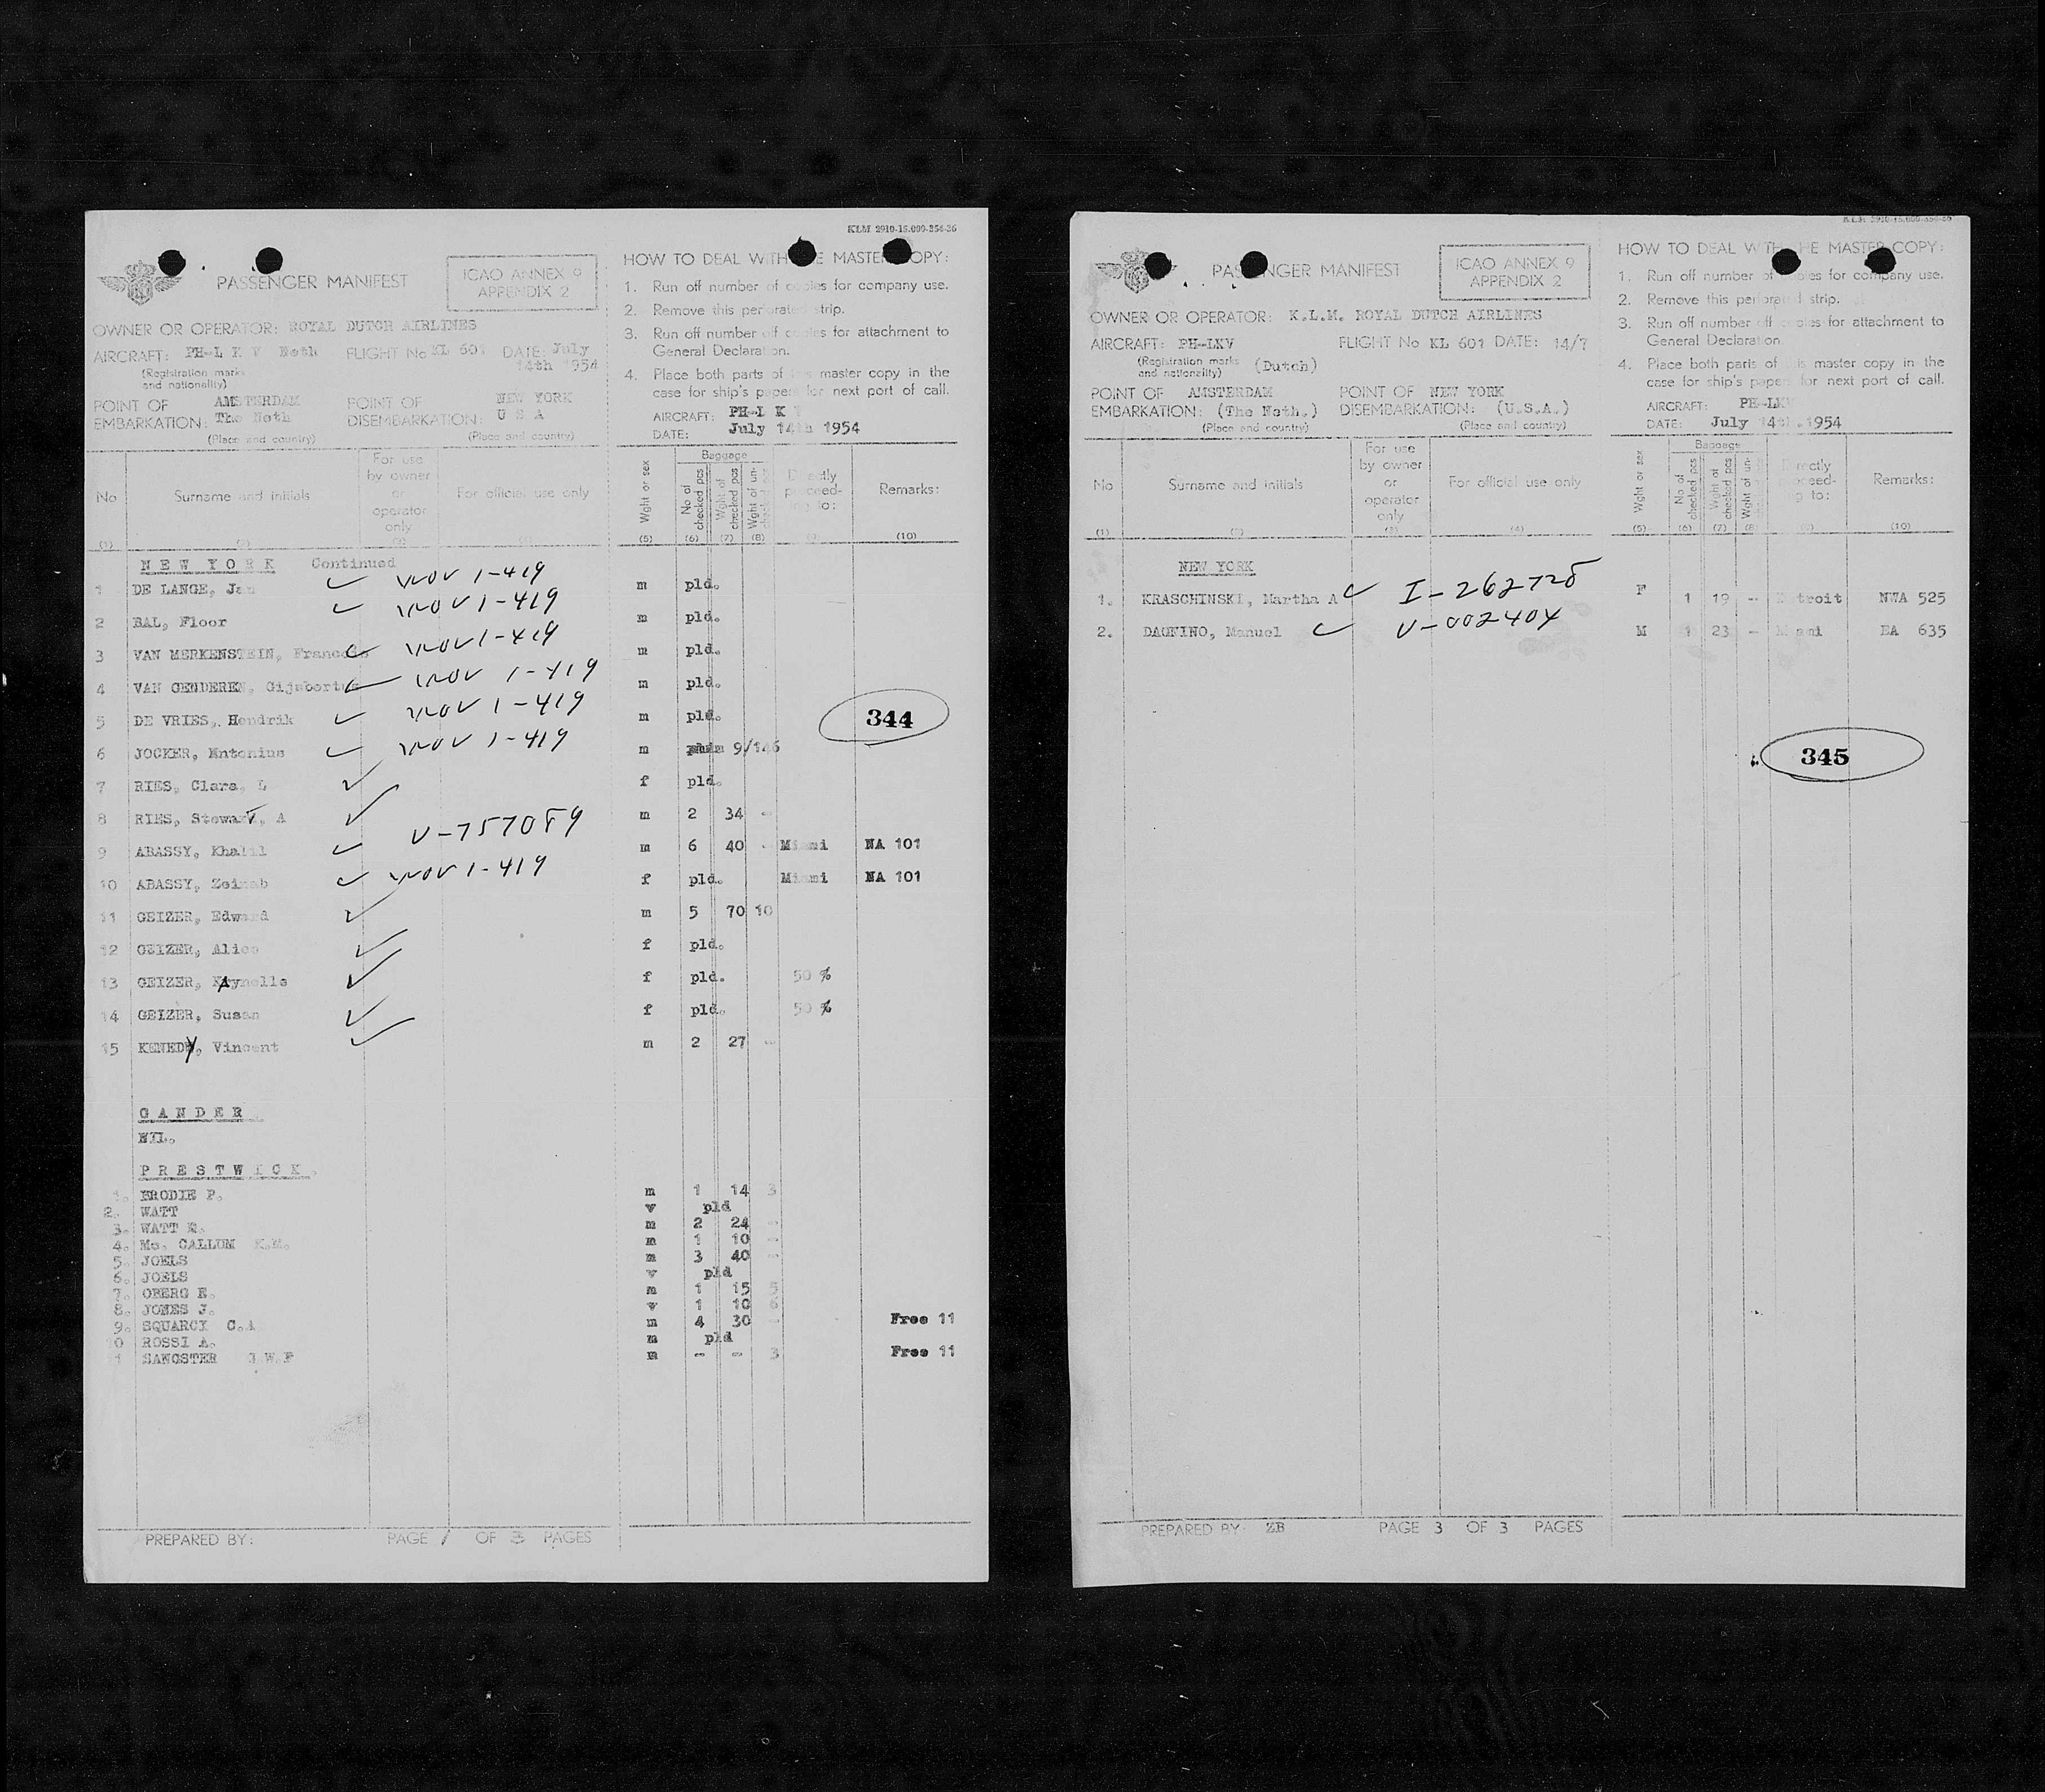 KLM 2910-15.000-354-36
PASSENGER MANIFEST
ICAO ANNEX 9
APPENDIX 2
OWNER OR OPERATOR: ROYAL DUTCH AIRLINES
AIRCRAFT: PH-L K V Neth FLIGHT No KL 601 DATE: July 14th 1954
(Registration marks and nationality)
POINT OF EMBARKATION: AMSTERDAM The Neth
(Place and country)
POINT OF DISEMBARKATION: NEW YORK U S A
(Place and country)
HOW TO DEAL WITH THE MASTER COPY:
1. Run off number of copies for company use.
2. Remove this perforated strip.
3. Run off number off copies for attachment to General Declaration.
4. Place both parts of this master copy in the case for ship's papers for next port of call.
AIRCRAFT: PH-L K
DATE: July 14th 1954
No Surname and initials For use by owner or operator only For official use only Wght or sex Baggage No of checked pcs Wght of checked pcs Wght of un- Directly proceeding to: Remarks:
(1) (2) (3) (5) (6) (7) (8) (10)
NEW YORK Continued
1 DE LANGE, Jan ✓ 1-419 m pld.
2 BAL, Floor ✓ 1-419 m pld.
3 VAN MERKENSTEIN, Francois ✓ 1-419 m pld.
4 VAN GENDEREN, Gijsbertus ✓ 1-419 m pld.
5 DE VRIES, Hendrik ✓ 1-419 m pld.
344
6 JOCKER, Antonius ✓ 1-419 m 9/146
7 RIES, Clara, L ✓ f pld.
8 RIES, Stewart, A ✓ m 2 34 -
9 ABASSY, Khalil ✓ V-757089 m 6 40 - Miami NA 101
10 ABASSY, Zeinab ✓ 1-419 f pld. Miami NA 101
11 GEIZER, Edward ✓ m 5 70 10
12 GEIZER, Alice ✓ f pld.
13 GEIZER, ✓ f pld. 50 %
14 GEIZER, Susan ✓ f pld. 50 %
15 KENEDY, Vincent ✓ m 2 27 -
GANDER
NIL.
PRESTWICK.
1. BRODIE P. m 1 14 3
2. WATT v pld
3. WATT E. m 2 24 -
4. Mc. CALLUM K.M. m 1 10 -
5. JOELS m 3 40 -
6. JOELS v pld
7. OBERG E. m 1 15 5
8. JONES J. v 1 10 6
9. SQUARCY C.A m 4 30 - Free 11
10 ROSSI A. m pld
11 SANGSTER J.W.F m - - 3 Free 11
PREPARED BY: PAGE 1 OF 3 PAGES
KLM 2910-15.000-354-36
PASSENGER MANIFEST
ICAO ANNEX 9
APPENDIX 2
OWNER OR OPERATOR: K.L.M. ROYAL DUTCH AIRLINES
AIRCRAFT: PH-LKV (Dutch) FLIGHT No KL 601 DATE: 14/7
(Registration marks and nationality)
POINT OF EMBARKATION: AMSTERDAM (The Neth.)
(Place and country)
POINT OF DISEMBARKATION: NEW YORK (U.S.A.)
(Place and country)
HOW TO DEAL WITH THE MASTER COPY:
1. Run off number of copies for company use.
2. Remove this perforated strip.
3. Run off number off copies for attachment to General Declaration
4. Place both parts of this master copy in the case for ship's papers for next port of call.
AIRCRAFT: PH-LKV
DATE: July 14th.1954
No Surname and initials For use by owner or operator only For official use only Wght or sex Baggage No of checked pcs Wght of checked pcs Wght of un- Directly proceeding to: Remarks:
(1) (2) (3) (4) (5) (6) (7) (8) (9) (10)
NEW YORK
1. KRASCHINSKI, Martha A ✓ I-262728 F 1 19 - Detroit NWA 525
2. DAUFINO, Manuel ✓ V-002404 M 1 23 - Miami EA 635
345
PREPARED BY: ZB PAGE 3 OF 3 PAGES